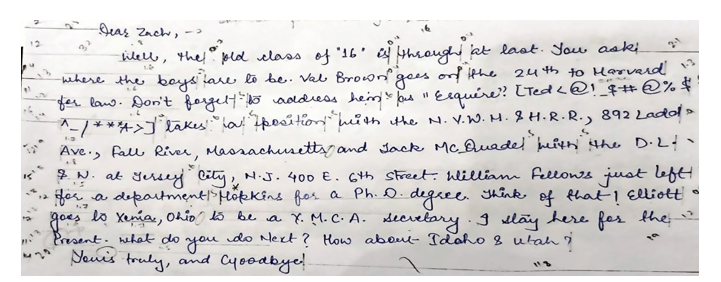 Dear Zach, -
Well, the old class of "16" is through at last. You ask
where the boys are to be. Val Brown goes on the 24th to Harvard
for law. Don't forget to address him as "Esquire"! [Ted <@! $#@%$
^_/***+>] takes a position with the N.Y.W.H. & H.R.R., 892 Ladd
Ave., Fall River, Massachusetts and Jack McQuade with the D.L.
& N. at Jersey City, N.J. 400 E. 6th street. William Fellows just left
for a department Hopkins for a Ph.D. degree. Think of that! Elliott
goes to Xenia, Ohio to be a Y.M.C.A. secretary. I stay here for the
Present. what do you do Next? How about Idaho & utah?
Yours truly, and Goodbye!